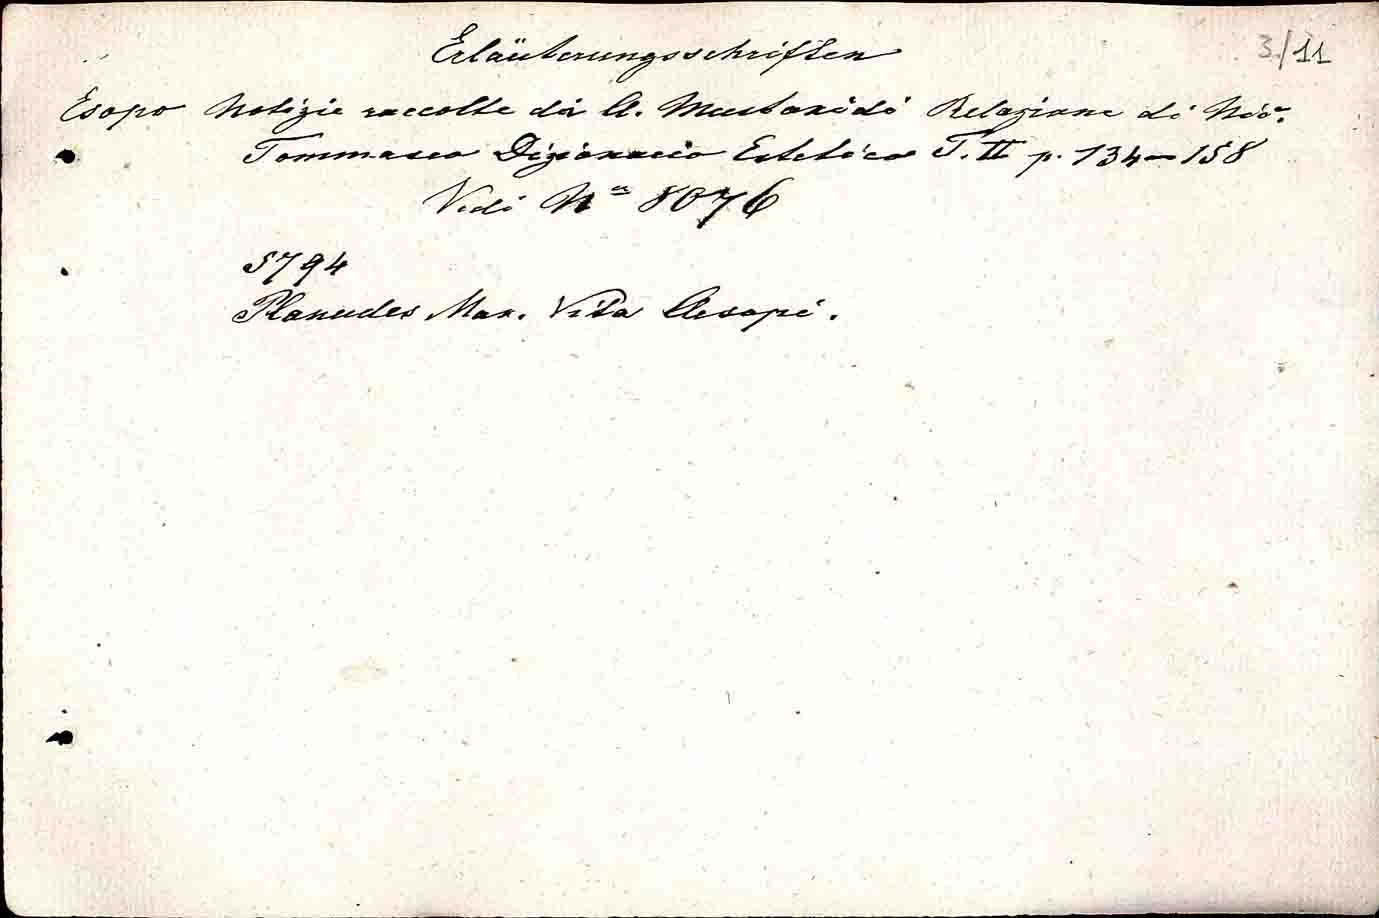 Erläuterungsschriften 3./11
Esopo Notizie raccolte da A. Mustoxidi Relazione di Nic.
Tommaseo Dizionario Estetico T. II p. 134–158
Vedi No 8076
5794
Planudes Max. Vita Aesopi.